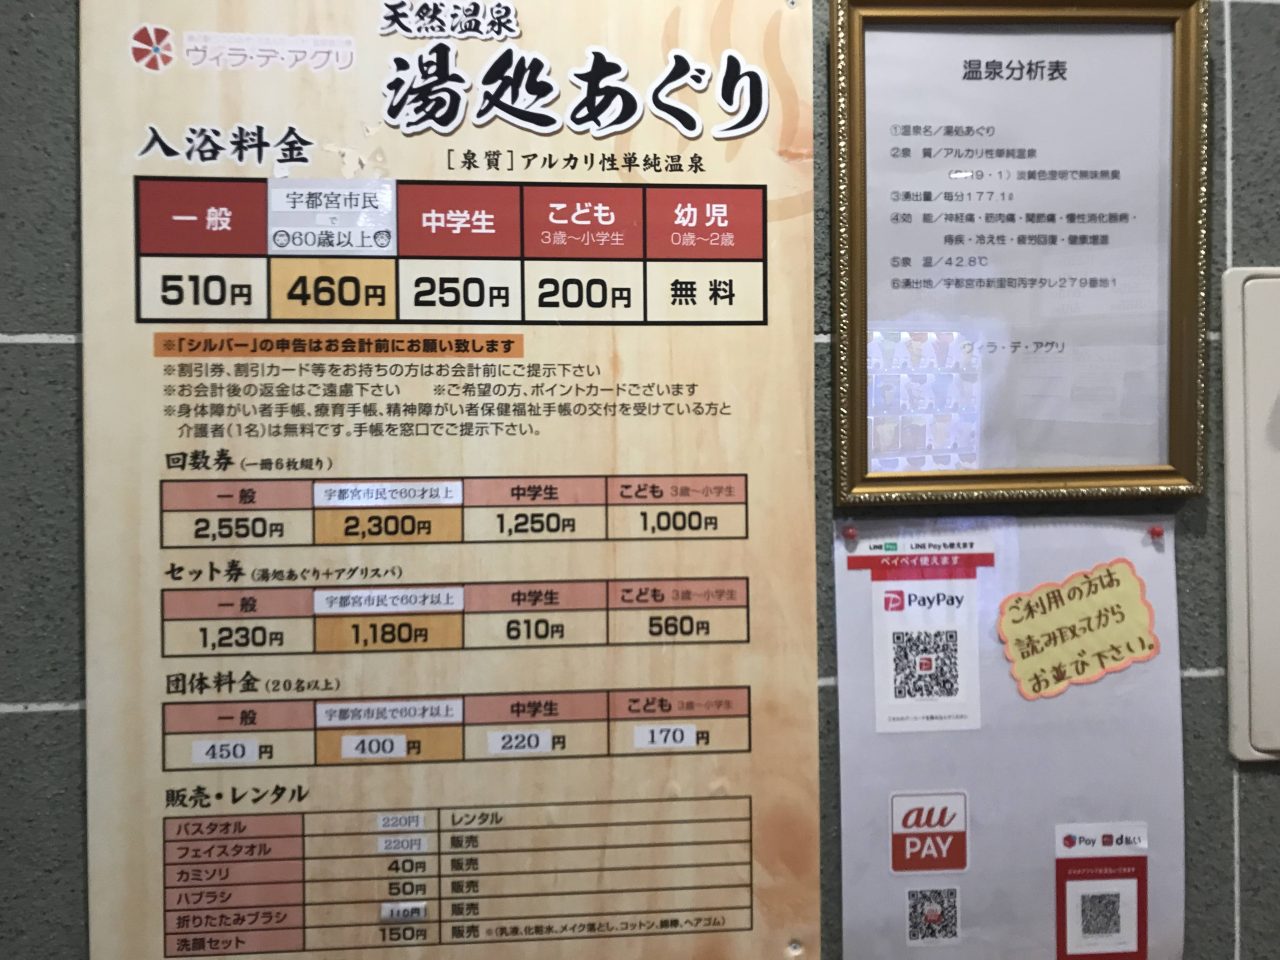 天然温泉
湯処あぐり
ヴィラ・デ・アグリ
入浴料金
[泉質]アルカリ性単純温泉
一般
宇都宮市民
で
60歳以上
中学生
こども
3歳〜小学生
幼児
0歳〜2歳
510円
460円
250円
200円
無料
※「シルバー」の申告はお会計前にお願い致します
※割引券、割引カード等をお持ちの方はお会計前にご提示下さい
※お会計後の返金はご遠慮下さい ※ご希望の方、ポイントカードございます
※身体障がい者手帳、療育手帳、精神障がい者保健福祉手帳の交付を受けている方と
介護者(1名)は無料です。手帳を窓口でご提示下さい。
回数券(一冊6枚綴り)
一般 宇都宮市民で60才以上 中学生 こども 3歳〜小学生
2,550円 2,300円 1,250円 1,000円
セット券(湯処あぐり+アグリスパ)
一般 宇都宮市民で60才以上 中学生 こども 3歳〜小学生
1,230円 1,180円 610円 560円
団体料金(20名以上)
一般 宇都宮市民で60才以上 中学生 こども 3歳〜小学生
450円 400円 220円 170円
販売・レンタル
バスタオル 220円 レンタル
フェイスタオル 220円 販売
カミソリ 40円 販売
ハブラシ 50円 販売
折りたたみブラシ 110円 販売
洗顔セット 150円 販売 ※(乳液、化粧水、メイク落とし、コットン、綿棒、ヘアゴム)
温泉分析表
①温泉名/湯処あぐり
②泉 質/アルカリ性単純温泉
9・1) 淡黄色澄明で無味無臭
③湧出量/毎分177.1ℓ
④効 能/神経痛・筋肉痛・関節痛・慢性消化器病・
痔疾・冷え性・疲労回復・健康増進
⑤泉 温/42.8℃
⑥湧出地/宇都宮市新里町丙字タレ279番地1
ヴィラ・デ・アグリ
LINE Pay LINE Payも使えます
ペイペイ使えます
PayPay
ご利用の方は
読み取ってから
お並び下さい。
au
PAY
Pay d払い